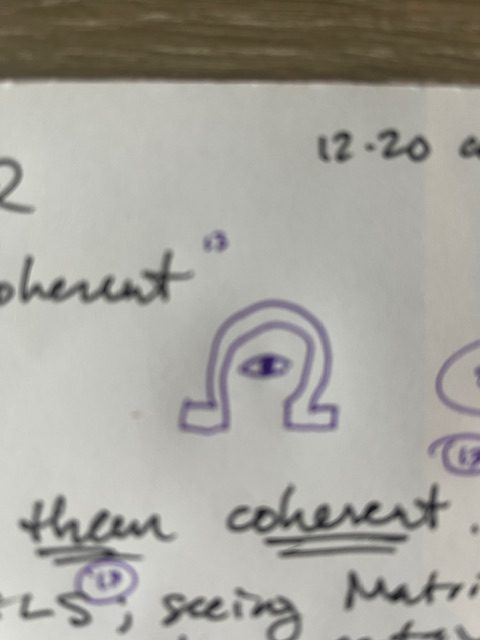 12.20
2
oherent 13
13
them coherent.
LS 13; seeing Matri